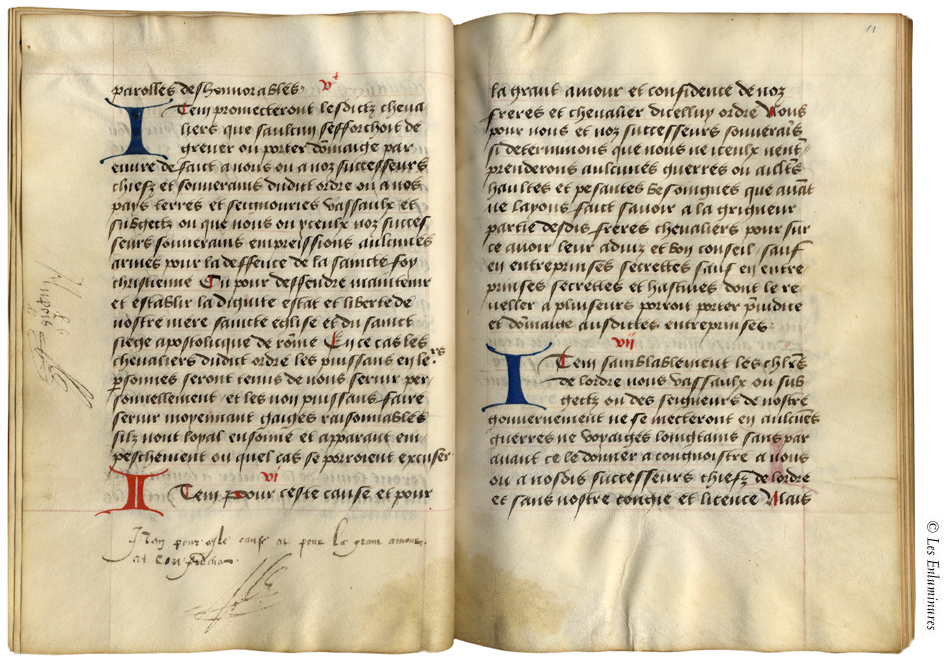 parolles deshonnorables.
v
Item promecteront lesdictz cheva
liers que saulcun sefforchoit de
grever ou porter domaige par
euvre de faict a nous ou a noz successeurs
chiefz et souverains dudict ordre ou a nos
pays terres et seignouries vassaulx et
subgectz ou que nous ou yceulx noz succes
seurs souverains empreissions aulcunes
armes pour la deffence de la saincte foy
christienne Ou pour deffendre maintenir
et establir la dignite estat et liberte de
nostre mere saincte eglise et du sainct
siege apostolicque de rome En ce cas les
chevaliers dudict ordre les puissans en leurs
psonnes seront tenus de nous servir per
sonnellement et les non puissans faire
servir moyennant gaiges raisonnables
silz nont loyal ensonne et apparant em
peschement ou quel cas se porroient excuser
vi
Item pour ceste cause et pour
Item pour ceste cause et pour la grant amour
et confidence
11
la grant amour et confidence de noz
freres et chevalier dicelluy ordre Nous
pour nous et noz successeurs souverais
si determinons que nous ne iceulx nent
prenderons aulcunes guerres ou aultes
haultes et pesantes besoingnes que avat
ne layons faict savoir a la grigneur
partie desdis freres chevaliers pour sur
ce avoir leur aduiz et bon conseil / sauf
en entreprinses secrettes sauf en entre
prinses secrettes et hastives dont le re
veller a plusieurs porroit porter preiudice
et domaige ausdictes entreprinses
vii
Item samblablement les chlrs
de lordre nous vassaulx ou sub
gectz ou des seigneurs de nostre
gouvernement ne se mecteront en aulcues
guerres ne voyaiges longtains sans par
avant ce le donner a congnoistre a nous
ou a nosdis successeurs chiefz de lordre
et sans nostre congie et licence Mais
© Les Enluminures